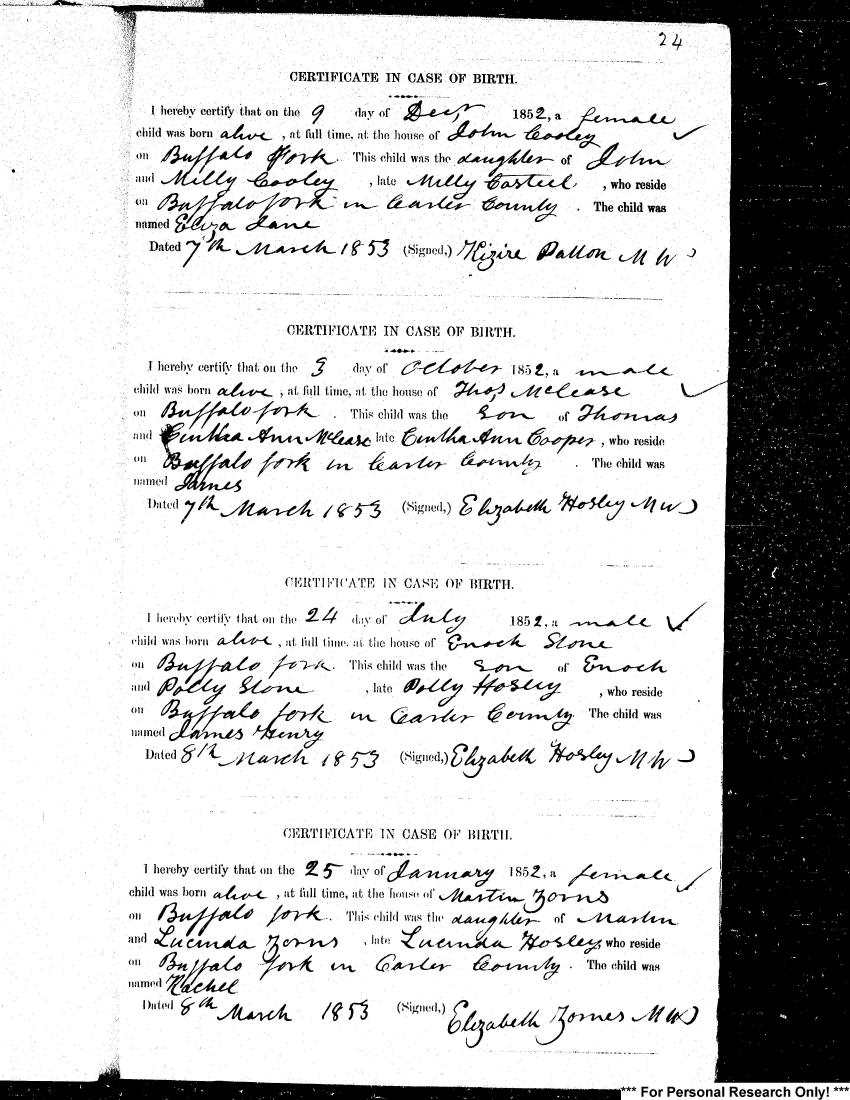 24
CERTIFICATE IN CASE OF BIRTH.
I hereby certify that on the 9 day of Decr, 1852, a female
child was born alive, at full time, at the house of John Cooley
on Buffalo fork. This child was the daughter of John
and Milly Cooley, late Milly Casteel, who reside
on Buffalo fork in Carter County. The child was
named Eliza Jane
Dated 7th March 1853 (Signed,) Kizire Patton M W
CERTIFICATE IN CASE OF BIRTH.
I hereby certify that on the 3 day of October 1852, a male
child was born alive, at full time, at the house of Thos, McLease
on Buffalo fork. This child was the Son of Thomas
and Cintha Ann McLease late Cintha Ann Cooper, who reside
on Buffalo fork in Carter County. The child was
named James
Dated 7th March 1853 (Signed,) Elizabeth Hosley M W
CERTIFICATE IN CASE OF BIRTH.
I hereby certify that on the 24 day of July 1852, a male
child was born alive, at full time, at the house of Enoch Stone
on Buffalo fork. This child was the Son of Enoch
and Polly Stone, late Polly Hosley, who reside
on Buffalo fork in Carter County The child was
named James Henry
Dated 8th March 1853 (Signed,) Elizabeth Hosley M W
CERTIFICATE IN CASE OF BIRTH.
I hereby certify that on the 25 day of January 1852, a female
child was born alive, at full time, at the house of Martin Zorns
on Buffalo fork. This child was the daughter of Martin
and Lucinda Zorns, late Lucinda Hosley, who reside
on Buffalo fork in Carter County. The child was
named Rachel
Dated 8th March 1853 (Signed,) Elizabeth Zornes M W
*** For Personal Research Only! ***